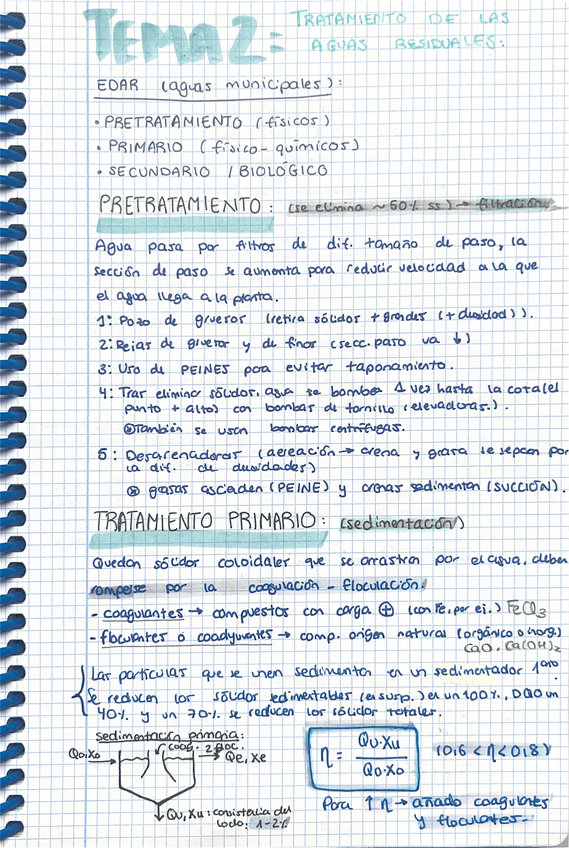 TEMA 2: TRATAMIENTO DE LAS
AGUAS RESIDUALES:
EDAR (aguas municipales):
• PRETRATAMIENTO (físicos)
• PRIMARIO (físico-químicos)
• SECUNDARIO / BIOLÓGICO
PRETRATAMIENTO: (se elimina ~60% ss) → filtración
Agua pasa por filtros de dif. tamaño de paso, la
sección de paso se aumenta para reducir velocidad a la que
el agua llega a la planta.
1: Pozo de gruesos (retira sólidos + grandes (+ densidad)).
2: Rejas de gruesos y de finos (secc. paso va ↓)
3: Uso de PEINES para evitar taponamiento.
4: Tras eliminar sólidos, agua se bombea 1 vez hasta la cota (el
punto + alto) con bombas de tornillo (elevadoras.).
⊛ También se usan bombas centrífugas.
5: Desarenadores (aereación → arena y grasa se sepan por
la dif. de densidades)
⊛ grasas ascienden (PEINE) y arenas sedimentan (SUCCIÓN).
TRATAMIENTO PRIMARIO: (sedimentación)
Quedan sólidos coloidales que se arrastran por el agua, deben
romperse por la coagulación - floculación.
- coagulantes → compuestos con carga ⊕ (con Fe, por ej.) FeCl3
- floculantes o coadyuvantes → comp. origen natural (orgánico o inorg.)
CaO, Ca(OH)2
Las partículas que se unen sedimentan en un sedimentador 1ario
Se reducen los sólidos sedimentables (en susp.) en un 100%, DQO un
40% y un 70% se reducen los sólidos totales.
sedimentación primaria:
coag. floc.
Qo, Xo → → Qe, Xe
Qu, Xu: consistencia del
lodo: 1-2%
η = Qu·Xu / Qo·Xo (0,6 < η < 0,8)
Para ↑ η → añado coagulantes
y floculantes.